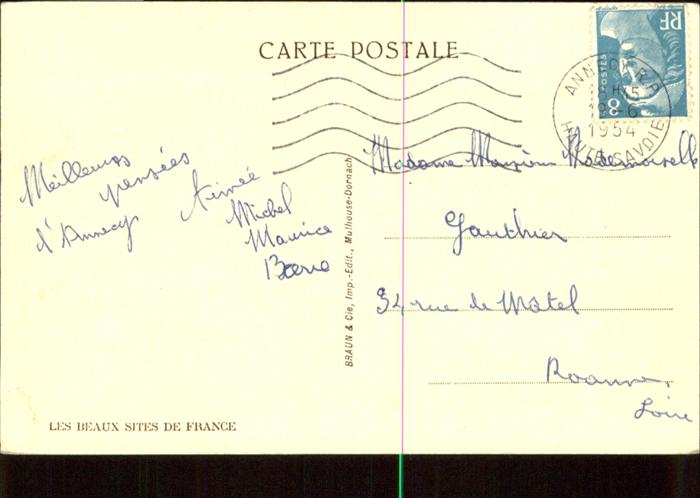 CARTE POSTALE
RF
POSTES
8
ANNECY R.P.
15
19-6
1954
HAUTE SAVOIE
Meilleures
pensées
d'Annecy
Aimée
Michel
Maurice
BRAUN & Cie, Imp.-Edit., Mulhouse-Dornach
Madame Monsieur Mademoiselle
Gauthier
34 rue de Matel
Roanne
Loire
LES BEAUX SITES DE FRANCE